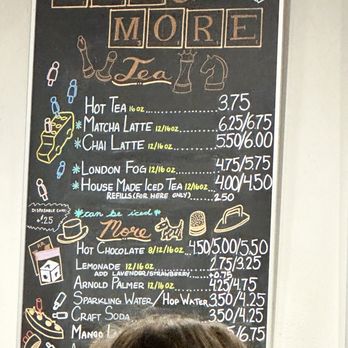 MORE
Tea
HOT TEA 16oz 3.75
*MATCHA LATTE 12/16oz 6.25/6.75
*CHAI LATTE 12/16oz 5.50/6.00
*LONDON FOG 12/16oz 4.75/5.75
*HOUSE MADE ICED TEA 12/16oz 4.00/4.50
REFILLS (FOR HERE ONLY) 2.50
*can be iced*
DISPOSABLE CUP:
$.25
More
HOT CHOCOLATE 8/12/16oz 4.50/5.00/5.50
LEMONADE 12/16oz 2.75/3.25
ADD LAVENDER/STRAWBERRY +0.75
ARNOLD PALMER 12/16oz 4.25/4.75
SPARKLING WATER/HOP WATER 3.50/4.25
CRAFT SODA 3.50/4.25
MANGO